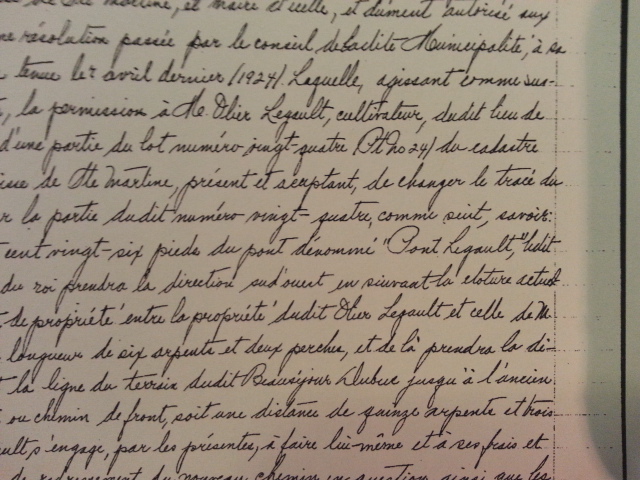 de Ste Martine, et maire d'icelle, et dûment autorisé aux
résolution passée par le conseil de Ladite Municipalité, à sa
tenue le 1r avril dernier (1924). Laquelle, agissant comme sus-
, la permission à M. Olier Legault, cultivateur, dudit lieu de
d'une partie du lot numéro vingt-quatre (Pt. No 24) du cadastre
isse de Ste Martine, présent et acceptant, de changer le tracé du
r la partie dudit numéro vingt-quatre, comme suit, savoir:
cent vingt-six pieds du pont dénommé "Pont Legault," ledit
du roi prendra la direction sud'ouest en suivant la cloture actuel
de propriété entre la propriété dudit Olier Legault et celle de M
longueur de six arpents et deux perches, et de là prendra la di-
t la ligne du terrain dudit Beauséjour Dubuc jusqu'à l'ancien
ou chemin de front, soit une distance de quinze arpents et trois
ault s'engage, par les présentes, à faire lui-même et à ses frais et
de redressement du nouveau chemin en question ainsi que les